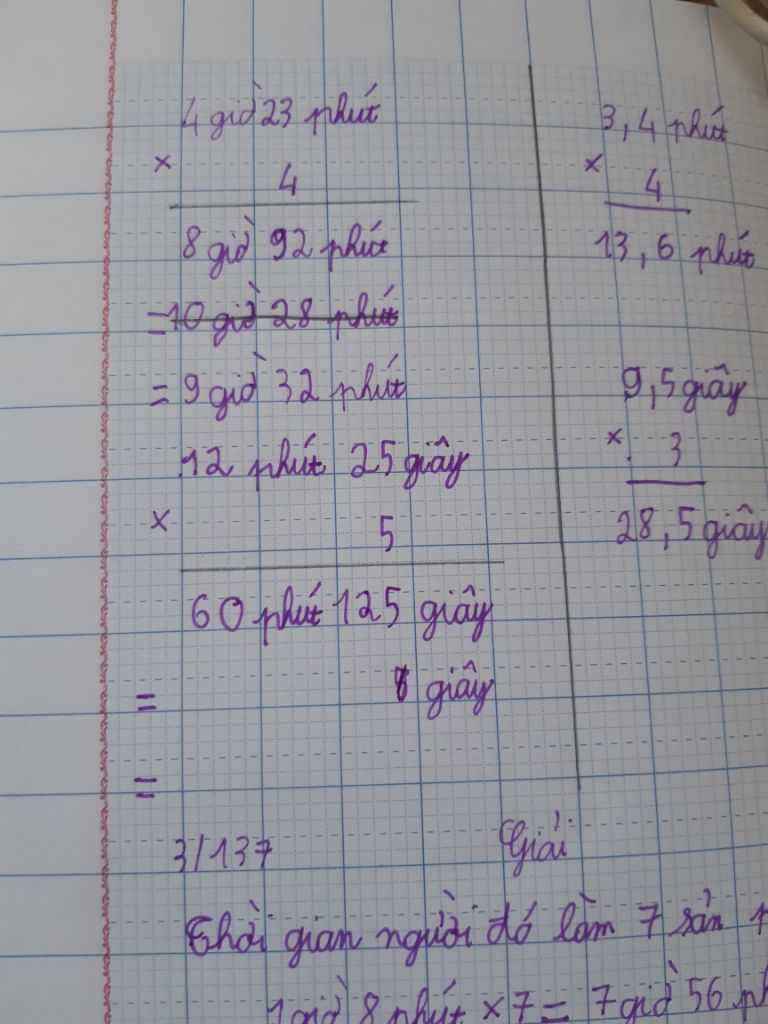 4 giờ 23 phút
×
4
8 giờ 92 phút
= 10 giờ 28 phút
= 9 giờ 32 phút
12 phút 25 giây
×
5
60 phút 125 giây
= giây
=
3,4 phút
×
4
13,6 phút
9,5 giây
×
3
28,5 giây
3/137 Giải
Thời gian người đó làm 7 sản
1 giờ 8 phút × 7 = 7 giờ 56